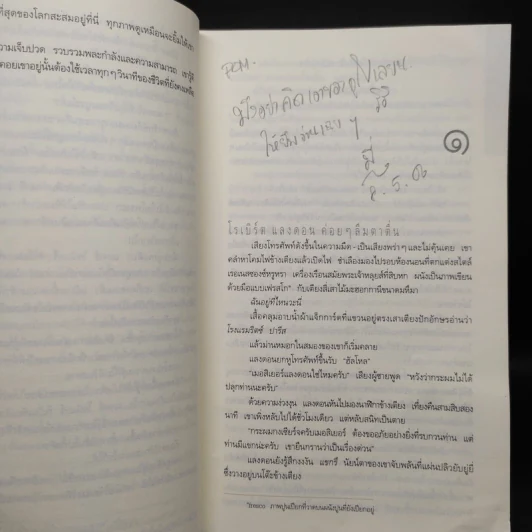 ที่สุดของโลกสะสมอยู่ที่นี่ ทุกภาพดูเหมือนจะยิ้มให้เขา
วามเจ็บปวด รวบรวมพละกำลังและความสามารถ เขารู้ดี
คอยเขาอยู่นั้นต้องใช้เวลาทุกๆวินาทีของชีวิตที่ยังคงเหลือ
๑
โรเบิร์ต แลงดอน ค่อยๆลืมตาตื่น
เสียงโทรศัพท์ดังขึ้นในความมืด–เป็นเสียงพร่าๆและไม่คุ้นเคย เขา
คลำหาโคมไฟข้างเตียงแล้วเปิดไฟ ชำเลืองมองไปรอบห้องนอนที่ตกแต่งสไตล์
เรอเนสซองซ์หรูหรา เครื่องเรือนสมัยพระเจ้าหลุยส์ที่สิบหก ผนังเป็นภาพเขียน
ด้วยมือแบบเฟรสโก* กับเตียงสี่เสาไม้มะฮอกกานีขนาดมหึมา
ฉันอยู่ที่ไหนวะนี่
เสื้อคลุมอาบน้ำผ้าแจ็กการ์ดที่แขวนอยู่ตรงเสาเตียงปักอักษรอ่านว่า
โรงแรมริตซ์ ปารีส
แล้วม่านหมอกในสมองของเขาก็เริ่มคลาย
แลงดอนยกหูโทรศัพท์ขึ้นรับ “ฮัลโหล”
“เมอสิเยอร์แลงดอนใช่ไหมครับ” เสียงผู้ชายพูด “หวังว่ากระผมไม่ได้
ปลุกท่านนะครับ”
ด้วยความง่วงงุน แลงดอนหันไปมองนาฬิกาข้างเตียง เที่ยงคืนสามสิบสอง
นาที เขาเพิ่งหลับไปได้ชั่วโมงเดียว แต่หลับสนิทเป็นตาย
“กระผมกงซิแยร์จครับเมอสิเยอร์ ต้องขออภัยอย่างยิ่งที่รบกวนท่าน แต่
ท่านมีแขกน่ะครับ เขายืนกรานว่าเป็นเรื่องด่วน”
แลงดอนยังรู้สึกงงงัน แขกรึ นัยน์ตาของเขาจับพลันที่แผ่นปลิวยับยู่ยี่
ซึ่งวางอยู่บนโต๊ะข้างเตียง
*fresco ภาพปูนเปียกที่วาดบนผนังปูนที่ยังเปียกอยู่